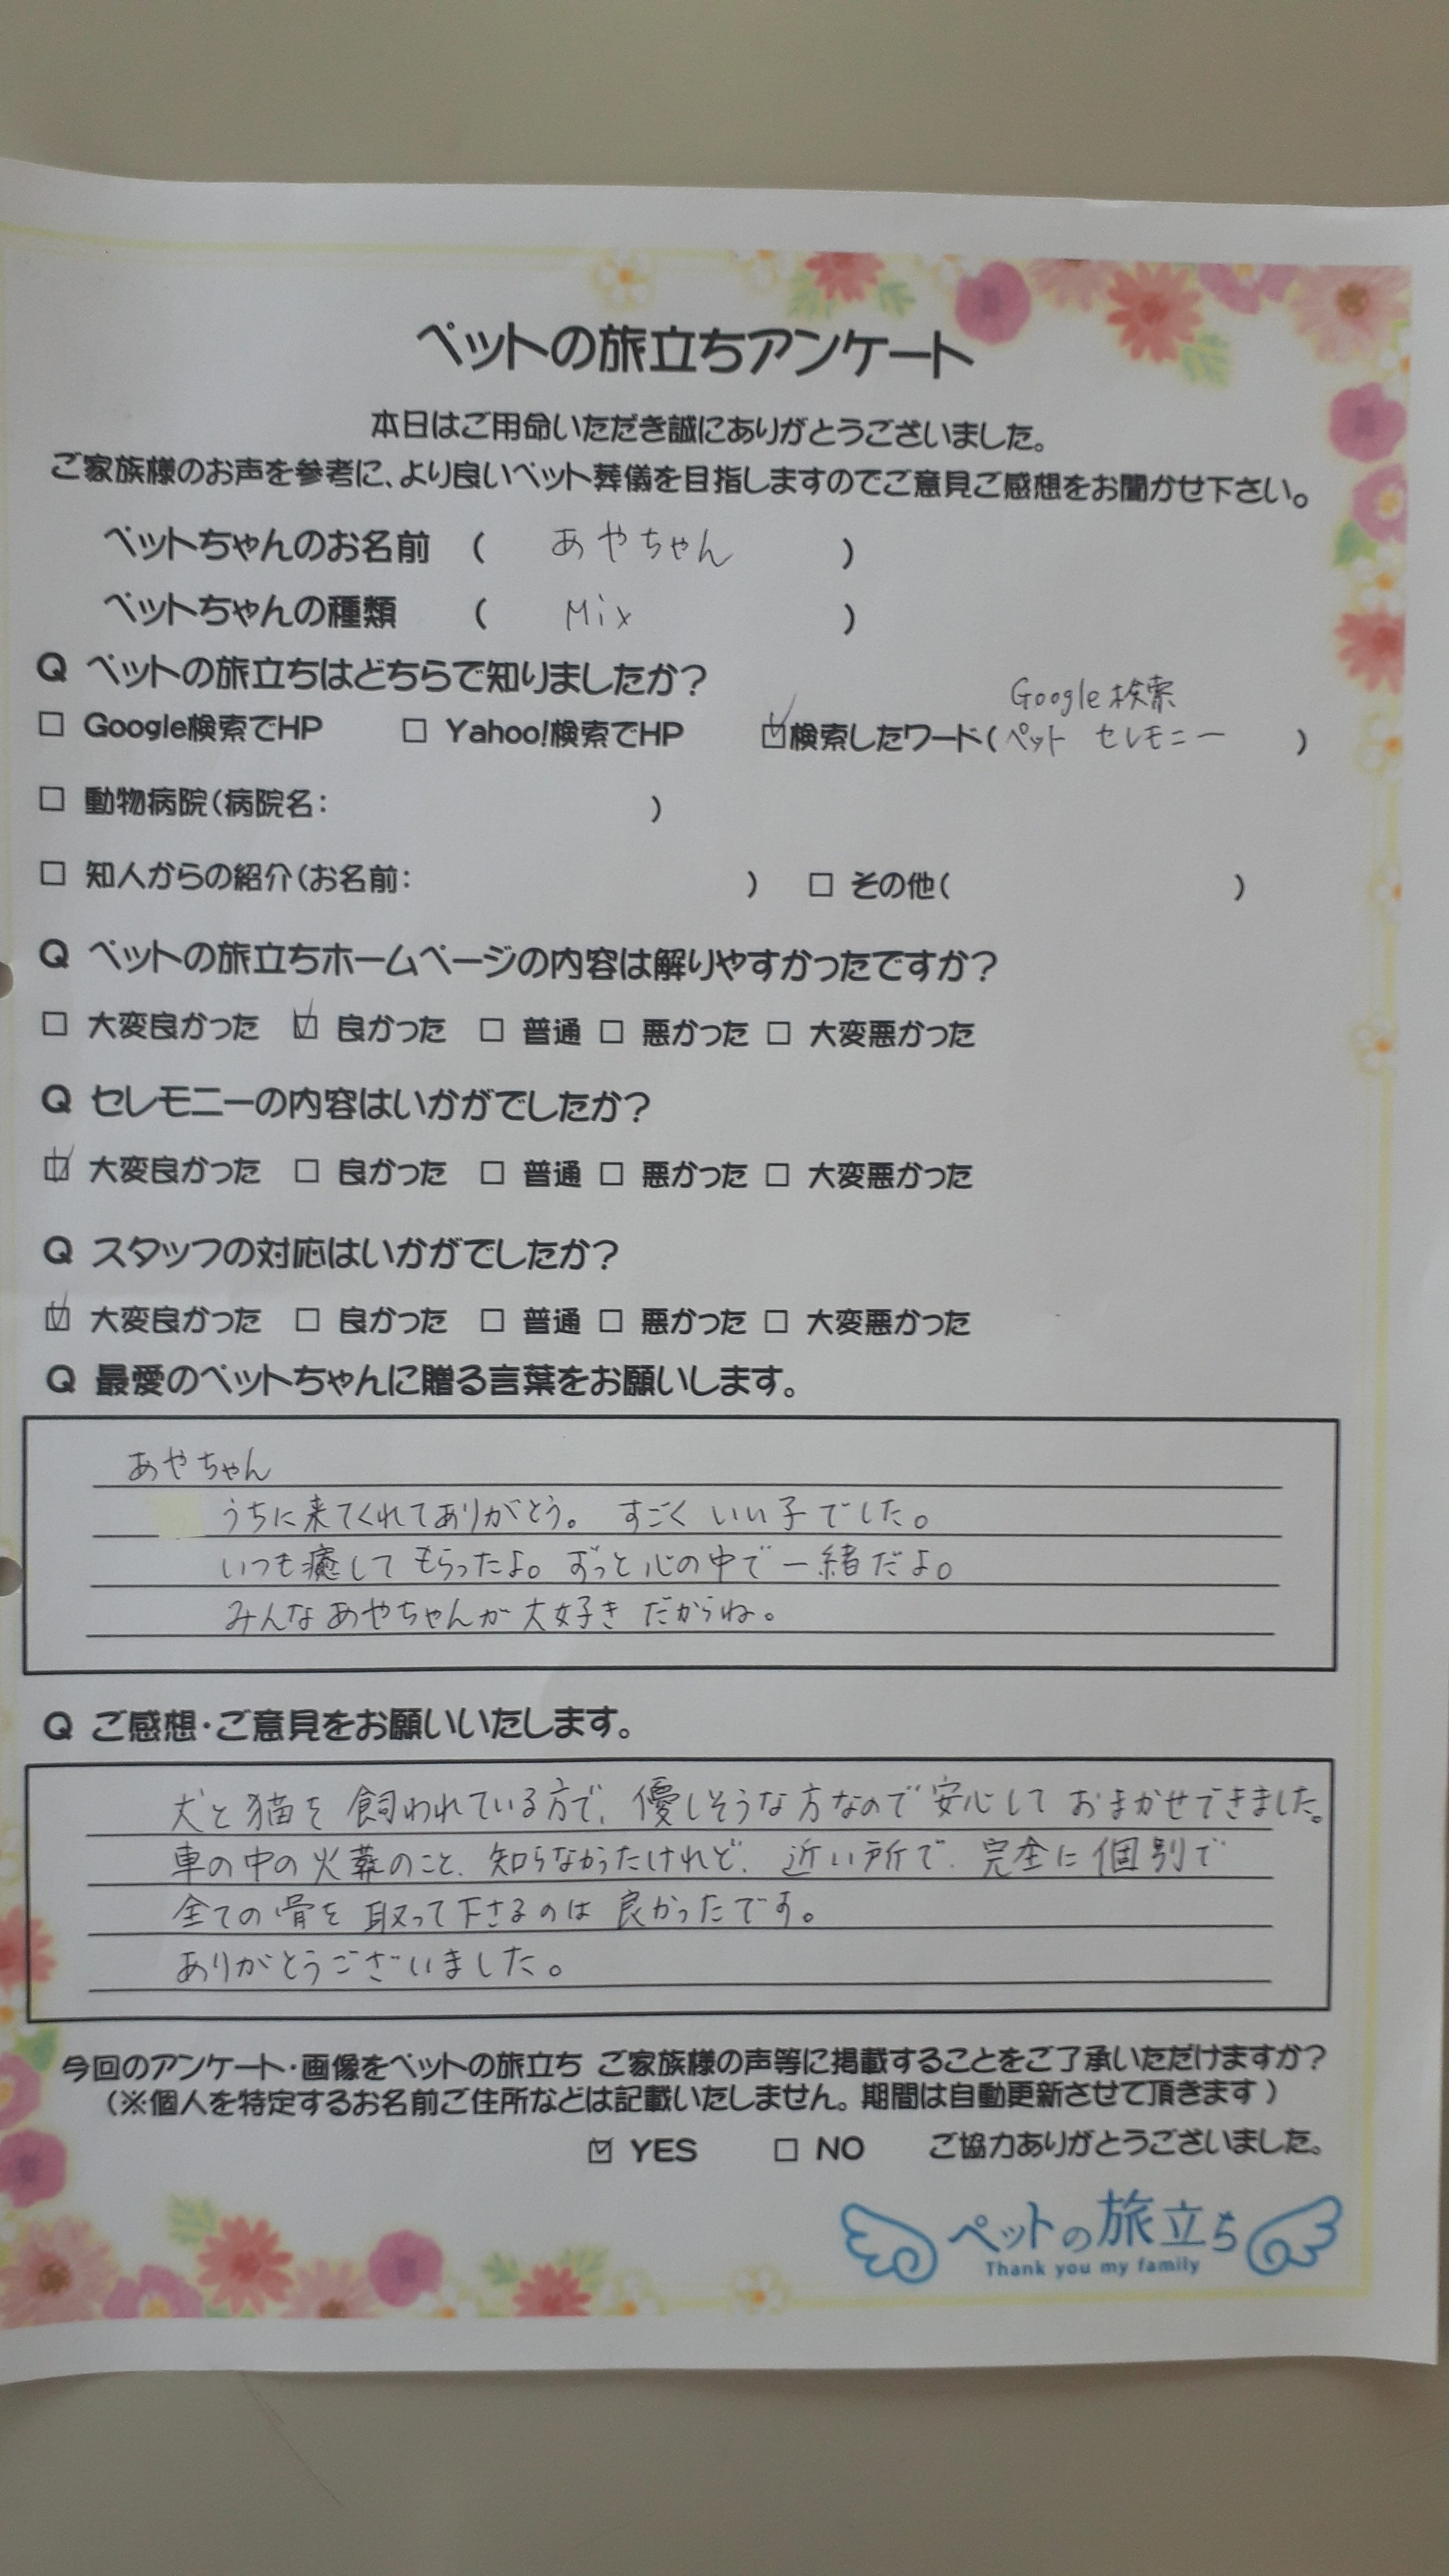 ペットの旅立ちアンケート
本日はご用命いただき誠にありがとうございました。
ご家族様のお声を参考に、より良いペット葬儀を目指しますのでご意見ご感想をお聞かせ下さい。
ペットちゃんのお名前 ( あやちゃん )
ペットちゃんの種類 ( Mix )
Q ペットの旅立ちはどちらで知りましたか?
Google検索
□ Google検索でHP □ Yahoo!検索でHP ☑検索したワード(ペット セレモニー )
□ 動物病院(病院名: )
□ 知人からの紹介(お名前: ) □ その他( )
Q ペットの旅立ちホームページの内容は解りやすかったですか?
□ 大変良かった ☑ 良かった □ 普通 □ 悪かった □ 大変悪かった
Q セレモニーの内容はいかがでしたか?
☑ 大変良かった □ 良かった □ 普通 □ 悪かった □ 大変悪かった
Q スタッフの対応はいかがでしたか?
☑ 大変良かった □ 良かった □ 普通 □ 悪かった □ 大変悪かった
Q 最愛のペットちゃんに贈る言葉をお願いします。
あやちゃん
うちに来てくれてありがとう。 すごく いい子でした。
いつも癒して もらったよ。ずっと心の中で一緒だよ。
みんなあやちゃんが大好き だからね。
Q ご感想・ご意見をお願いいたします。
犬と猫を飼われている方で、優しそうな方なので安心して おまかせできました。
車の中の火葬のこと、知らなかったけれど、近い所で、完全に個別で
全ての骨を取って下さるのは良かったです。
ありがとうございました。
今回のアンケート・画像をペットの旅立ち ご家族様の声等に掲載することをご了承いただけますか?
(※個人を特定するお名前ご住所などは記載いたしません。期間は自動更新させて頂きます)
☑ YES □ NO ご協力ありがとうございました。
ペットの旅立ち
Thank you my family